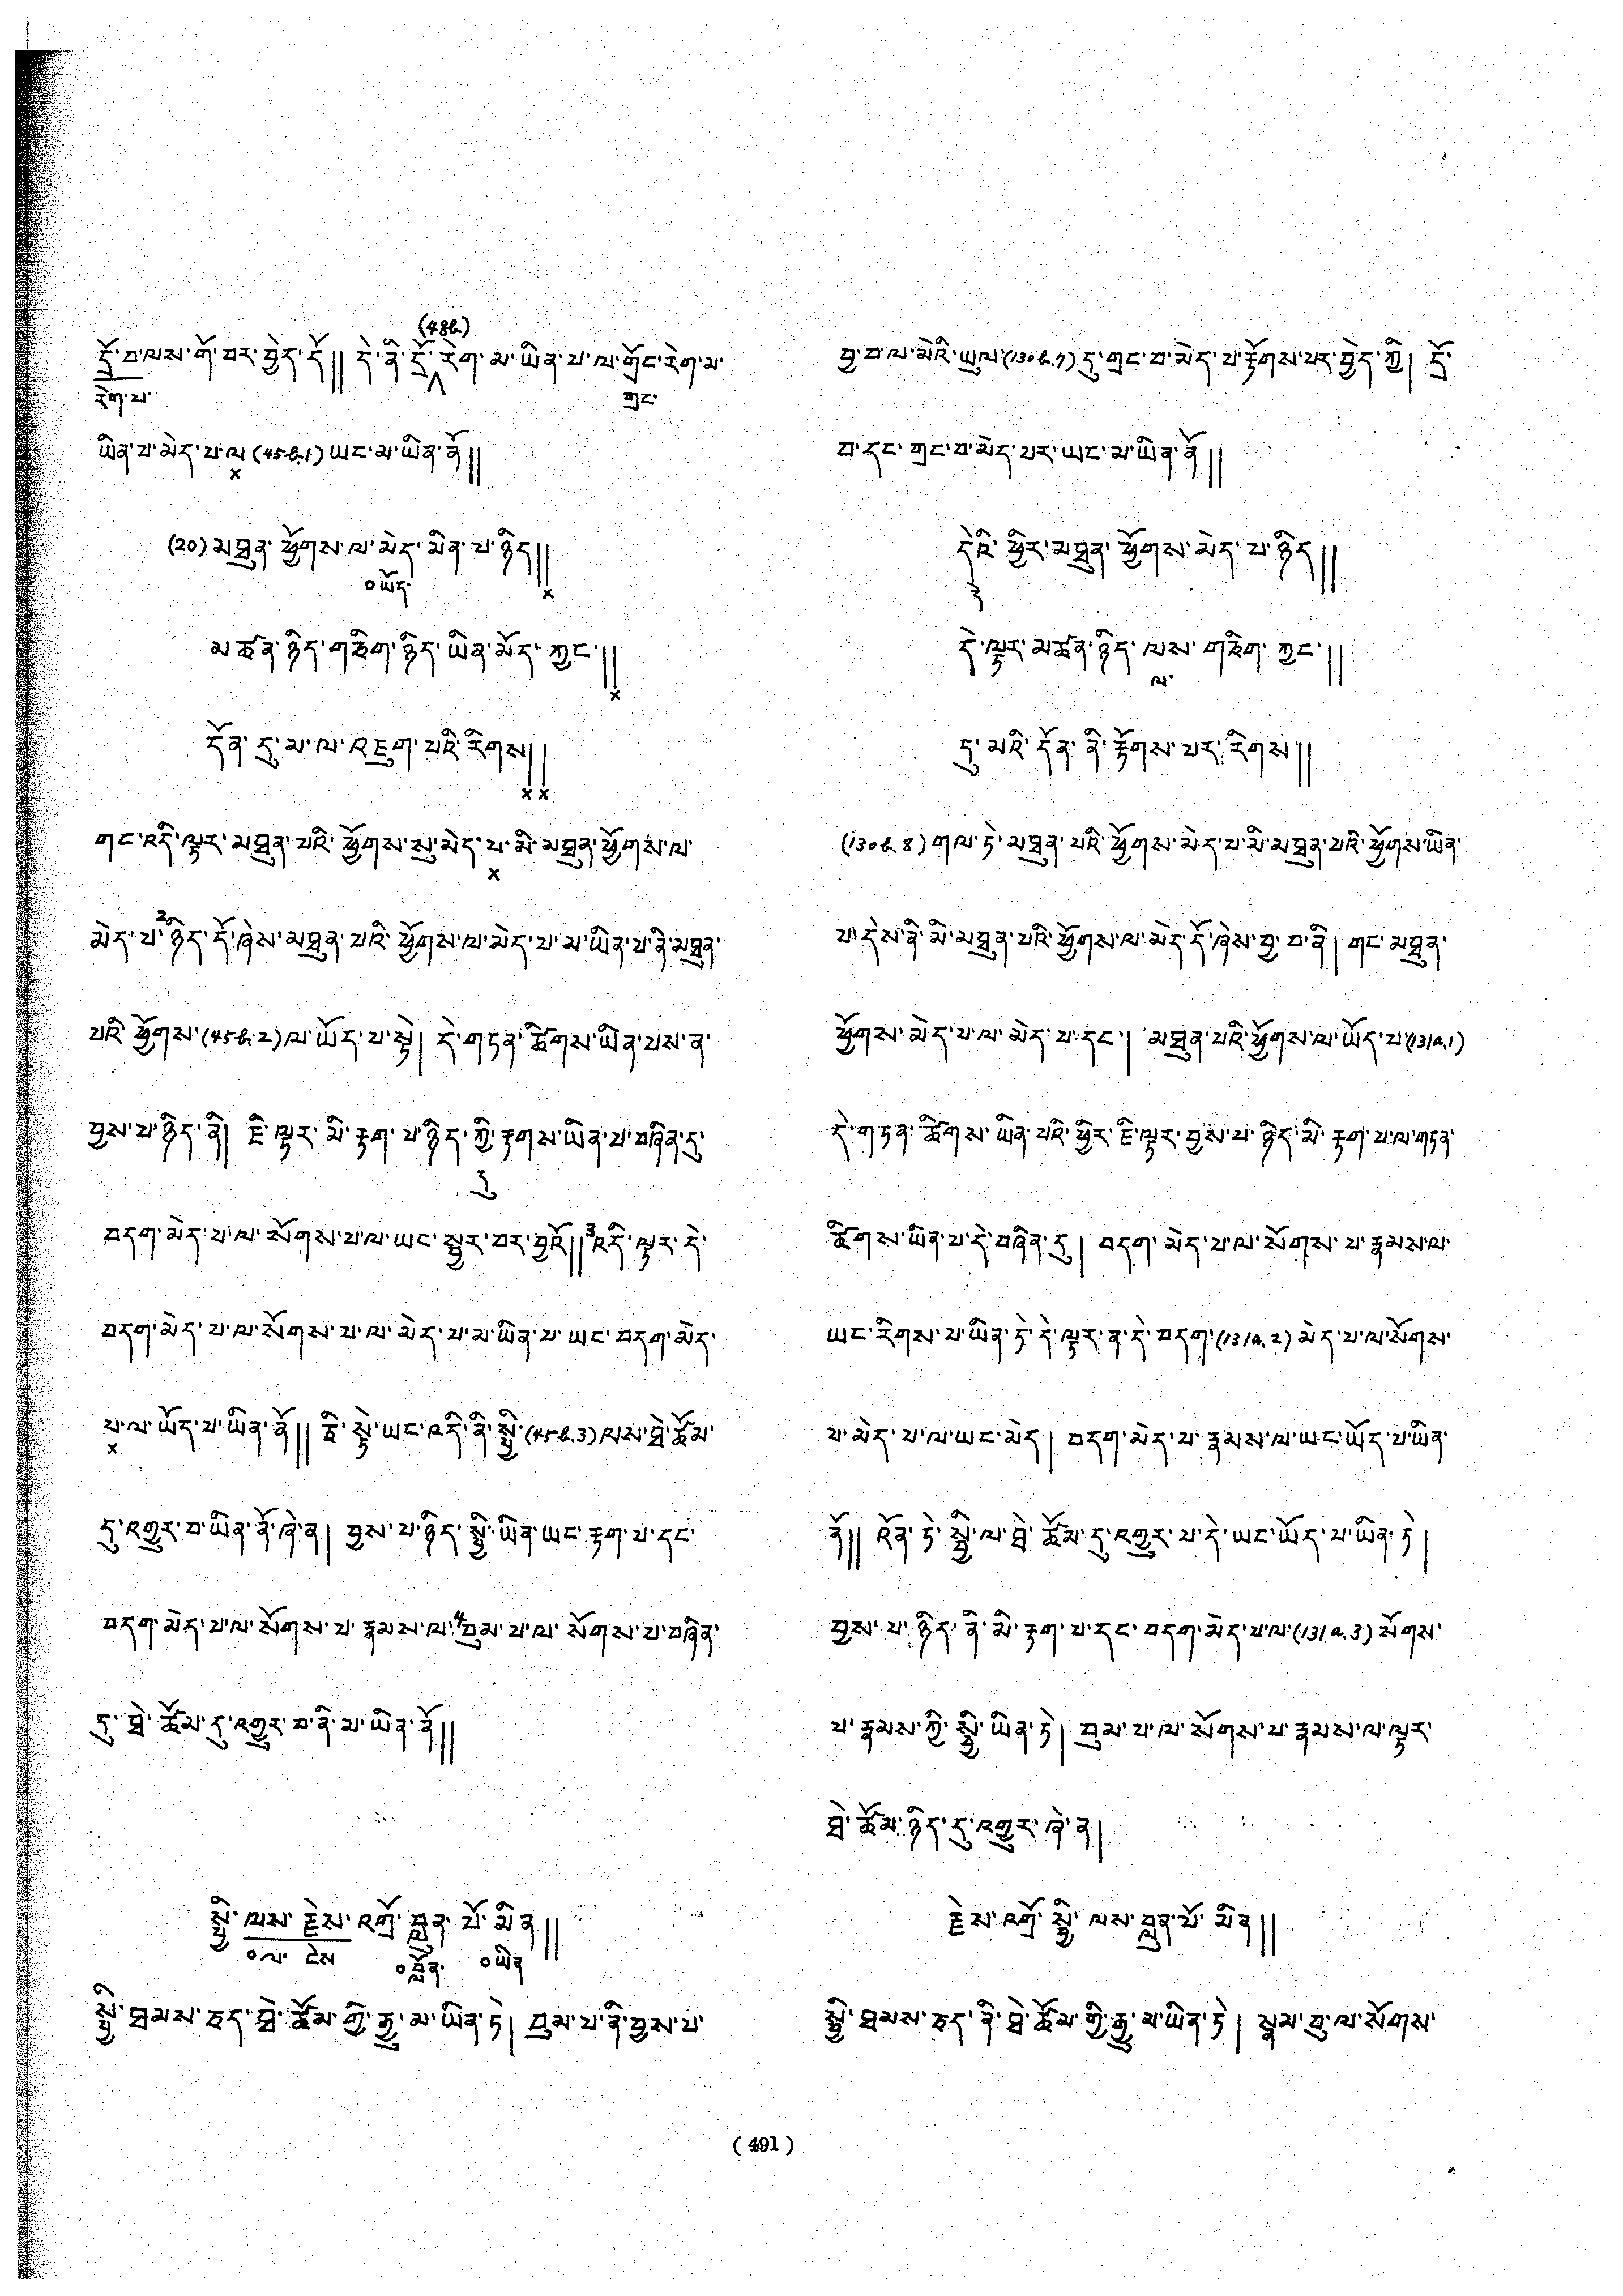 (48b)
དྲོ་བ་ལས་གོ་བར་བྱེད་དོ།། དེ་ནི་དྲོ་རེག་མ་ཡིན་པ་ལ་གྲོང་རེག་མ་
རེག་པ་ གྲང་
ཡིན་པ་མེད་པ་ལ (45b.1) ཡང་མ་ཡིན་ནོ།།
×
(20) མཐུན་ཕྱོགས་ལ་མེད་མིན་པ་ཉིད།།
༠ཡོད་ ×
མཚན་ཉིད་གཅིག་ཉིད་ཡིན་མོད་ཀྱང་།།
×
དོན་དུ་མ་ལ་འཇུག་པའི་རིགས།།
× ×
གང་འདི་ལྟར་མཐུན་པའི་ཕྱོགས་སུ་མེད་པ་མི་མཐུན་ཕྱོགས་ལ་
×
མེད་པ་2ཉིད་དོ་ཞེས་མཐུན་པའི་ཕྱོགས་ལ་མེད་པ་མ་ཡིན་པ་ནི་མཐུན་
པའི་ཕྱོགས་(45b.2)ལ་ཡོད་པ་སྟེ། དེ་གཏན་ཚིགས་ཡིན་པས་ན་
བྱས་པ་ཉིད་ནི། ཇི་ལྟར་མི་རྟག་པ་ཉིད་ཀྱི་རྟགས་ཡིན་པ་བཞིན་དུ་
བདག་མེད་པ་ལ་སོགས་པ་ལ་ཡང་སྦྱར་བར་བྱའོ།།3འདི་ལྟར་དེ་
བདག་མེད་པ་ལ་སོགས་པ་ལ་མེད་པ་མ་ཡིན་པ་ཡང་བདག་མེད་
པ་ལ་ཡོད་པ་ཡིན་ནོ།། ཅི་སྟེ་ཡང་འདི་ནི་སྤྱི་(45b.3)ལས་ཐེ་ཚོམ་
×
དུ་འགྱུར་བ་ཡིན་ནོ་ཞེ་ན། བྱས་པ་ཉིད་སྤྱི་ཡིན་ཡང་རྟག་པ་དང་
བདག་མེད་པ་ལ་སོགས་པ་རྣམས་ལ་4བུམ་པ་ལ་སོགས་པ་བཞིན་
དུ་ཐེ་ཚོམ་དུ་འགྱུར་བ་ནི་མ་ཡིན་ནོ།།
སྤྱི་ལས་རྗེས་འགྲོ་བླུན་པོ་མིན།།
༠ལ་ ངེས ༠བློན་ ༠ཡིན
སྤྱི་ཐམས་ཅད་ཐེ་ཚོམ་གྱི་རྒྱུ་མ་ཡིན་ཏེ། བུམ་པ་ནི་བྱས་པ་
བྱ་བ་ལ་མེའི་ཡུལ་(130b.7) དུ་གྲང་བ་མེད་པ་རྟོགས་པར་བྱེད་ཀྱི། དྲོ་
བ་དང་གྲང་བ་མེད་པར་ཡང་མ་ཡིན་ནོ།།
དེའི་ཕྱིར་མཐུན་ཕྱོགས་མེད་པ་ཉིད།།
དེ་ལྟར་མཚན་ཉིད་ལས་གཅིག་ཀྱང་།།
ལ་
དུ་མའི་དོན་ནི་རྟོགས་པར་རིགས།།
(130b.8) གལ་ཏེ་མཐུན་པའི་ཕྱོགས་མེད་པ་མི་མཐུན་པའི་ཕྱོགས་ཡིན་
པ་དེས་ནི་མི་མཐུན་པའི་ཕྱོགས་ལ་མེད་དོ་ཞེས་བྱ་བ་ནི། གང་མཐུན་
ཕྱོགས་མེད་པ་ལ་མེད་པ་དང་། མཐུན་པའི་ཕྱོགས་ལ་ཡོད་པ་(131a.1)
དེ་གཏན་ཚིགས་ཡིན་པའི་ཕྱིར་ཇི་ལྟར་བྱས་པ་ཉིད་མི་རྟག་པ་ལ་གཏན་
ཚིགས་ཡིན་པ་དེ་བཞིན་དུ། བདག་མེད་པ་ལ་སོགས་པ་རྣམས་ལ་
ཡང་རིགས་པ་ཡིན་ཏེ་དེ་ལྟར་ན་དེ་བདག་(131a.2) མེད་པ་ལ་སོགས་
པ་མེད་པ་ལ་ཡང་མེད། བདག་མེད་པ་རྣམས་ལ་ཡང་ཡོད་པ་ཡིན་
ནོ།། འོན་ཏེ་སྤྱི་ལ་ཐེ་ཚོམ་དུ་འགྱུར་བ་དེ་ཡང་ཡོད་པ་ཡིན་ཏེ།
བྱས་པ་ཉིད་ནི་མི་རྟག་པ་དང་བདག་མེད་པ་ལ་(131a.3) སོགས་
པ་རྣམས་ཀྱི་སྤྱི་ཡིན་ཏེ། བུམ་པ་ལ་སོགས་པ་རྣམས་ལ་ལྟར་
ཐེ་ཚོམ་ཉིད་དུ་འགྱུར་ཞེ་ན།
རྗེས་འགྲོ་སྤྱི་ལས་བླུན་པོ་མིན།།
སྤྱི་ཐམས་ཅད་ནི་ཐེ་ཚོམ་གྱི་རྒྱུ་མ་ཡིན་ཏེ། སྣམ་བུ་ལ་སོགས་
(491)